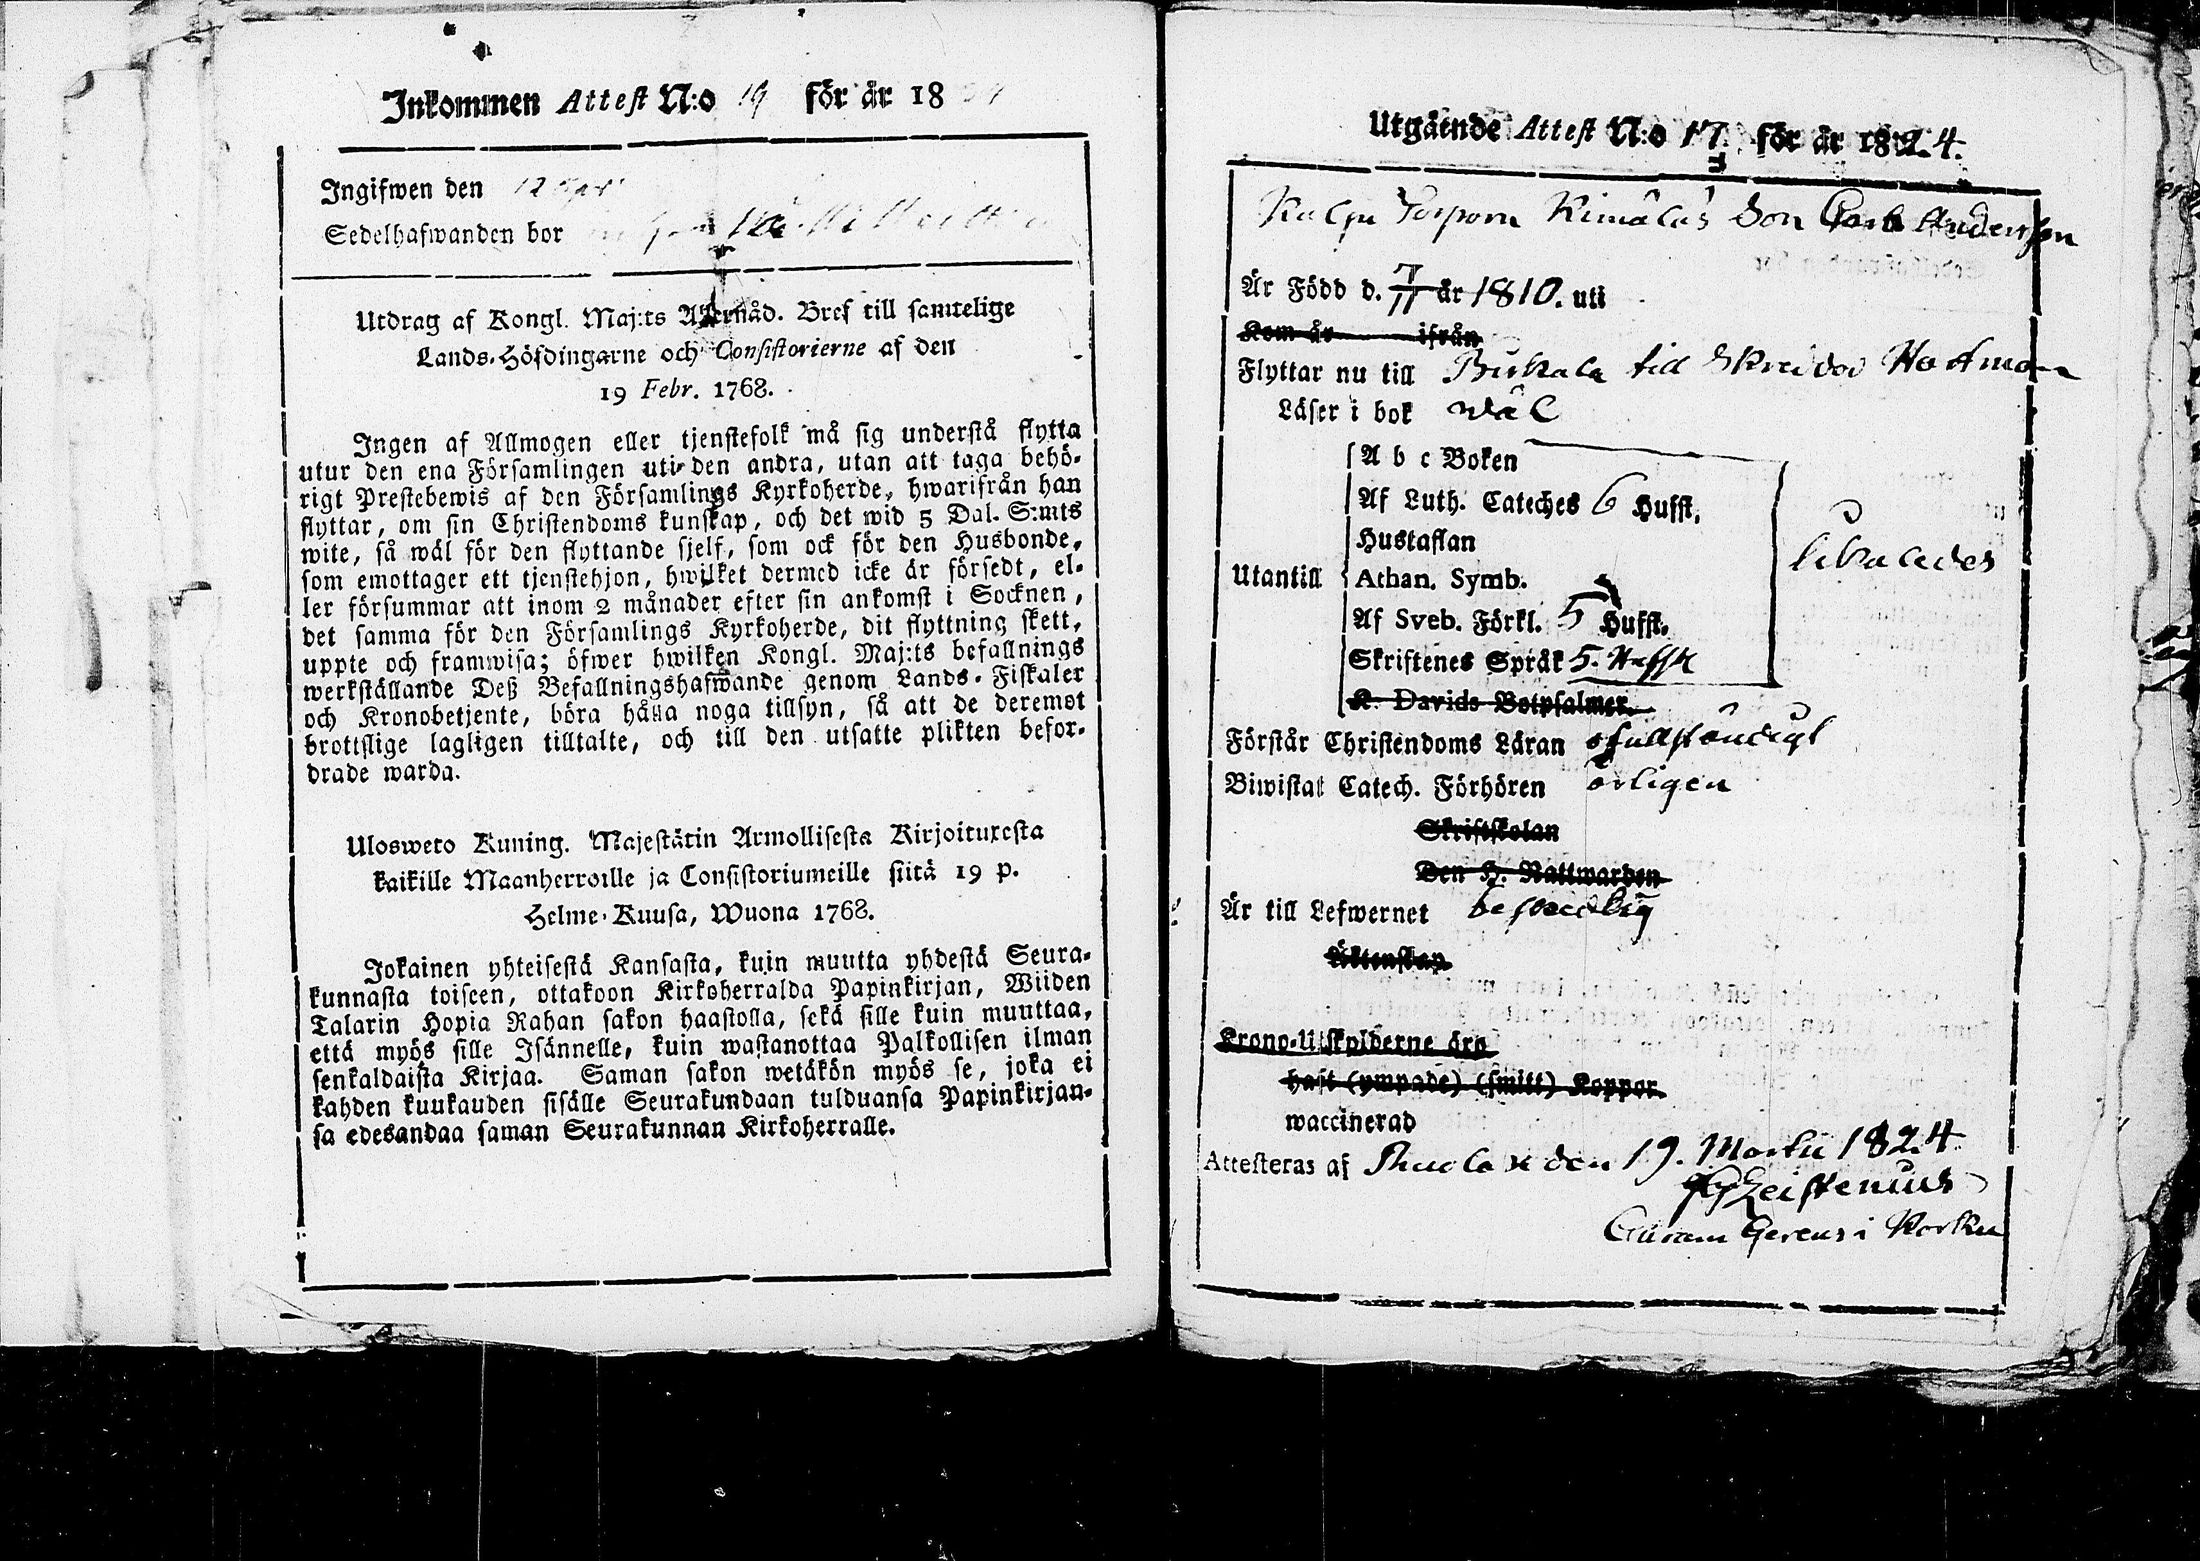 Inkommen Attest N:o 19 för år 18
Ingifwen den 12
Sedelhafwanden bor
Utdrag af Kongl. Maj:ts Allernåd. Bref till samtelige
Lands-Höfdingarne och Consistorierne af den
19 Febr. 1768.
Ingen af Allmogen eller tjenstefolk må sig understå flytta
utur den ena Församlingen uti den andra, utan att taga behö-
rigt Prestebewis af den Församlings Kyrkoherde, hwarifrån han
flyttar, om sin Christendoms kunskap, och det wid 5 Dal. S:mts
wite, så wäl för den flyttande sjelf, som ock för den Husbonde,
som emottager ett tjenstehjon, hwilket dermed icke är försedt, el-
ler försummar att inom 2 månader efter sin ankomst i Socknen,
det samma för den Församlings Kyrkoherde, dit flyttning skett,
uppte och framwisa; öfwer hwilken Kongl. Maj:ts befallnings
werkställande Deß Befallningshafwande genom Lands-Fiskaler
och Kronobetjente, böra hålla noga tillsyn, så att de deremot
brottslige lagligen tilltalte, och till den utsatte plikten befor-
drade warda.
Ulosweto Kuning. Majestätin Armollisesta Kirjoituxesta
kaikille Maanherroille ja Consistoriumeille siitä 19 p.
Helme-Kuusa, Wuona 1768.
Jokainen yhteisestä Kansasta, kuin muutta yhdestä Seura-
kunnasta toiseen, ottakoon Kirkoherralda Papinkirjan, Wiiden
Talarin Hopia Rahan sakon haastolla, sekä sille kuin muuttaa,
että myös sille Isännelle, kuin wastanottaa Palkollisen ilman
senkaldaista Kirjaa. Saman sakon wetäkön myös se, joka ei
kahden kuukauden sisälle Seurakundaan tulduansa Papinkirjan-
sa edesandaa saman Seurakunnan Kirkoherralle.
Utgåtnde Attest N:o 17. för år 1824.
Torparn Kimålas Son Andersson
Är Född d. 7/11 år 1810. uti
Kom år ifrån
Flyttar nu till Birkala till
Läser i bok wäl
A b c Boken
Af Luth. Cateches 6 Hufst.
Hustaflan
likaledes
Utantill Athan. Symb.
Af Sveb. Förkl. 5 Hufst.
Skriftenes Språk 5. Hufst
K. Davids Botpsalmer.
Förstår Christendoms Läran ofullständigt
Biwistat Catech. Förhören årligen
Skriftskolan
Den H. Nattwarden
Är till Lefwernet beskedlig
Äktenskap
Krono-Utskylderne äro
haft (ympade) (smitt) Koppor
waccinerad
Attesteras af den 19. Martii 1824
Zeistenius
Curam Gerens i Korku